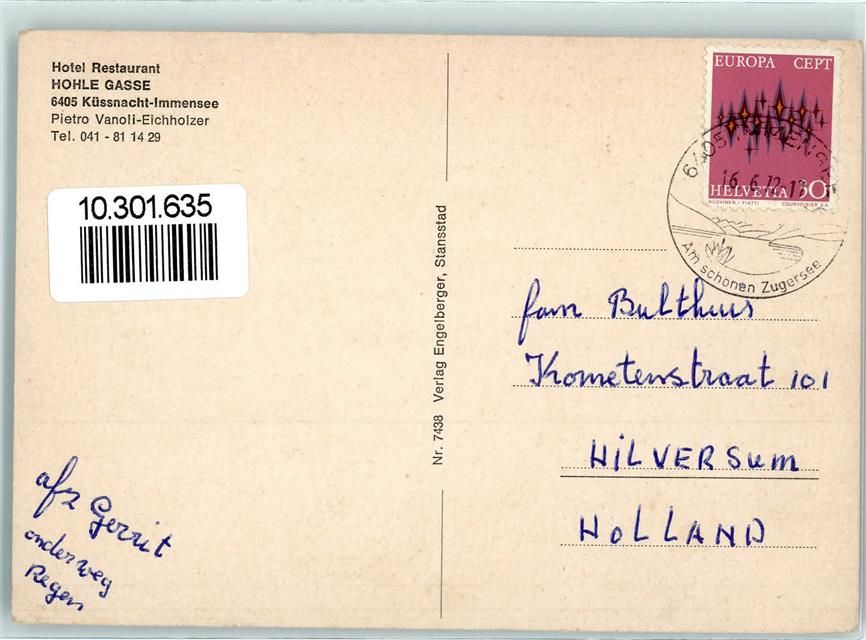 Hotel Restaurant
HOHLE GASSE
6405 Küssnacht-Immensee
Pietro Vanoli-Eichholzer
Tel. 041 - 81 14 29
10.301.635
Nr. 7438 Verlag Engelberger, Stansstad
EUROPA CEPT
HELVETIA 30
HUOVINEN / PIATTI COURVOISIER S.A.
6405 IMMENSEE
16.6.72.17
Am schönen Zugersee
fam Bulthuis
Kometenstraat 101
HILVERSUM
HOLLAND
afz Gerrit
onderweg
Regen